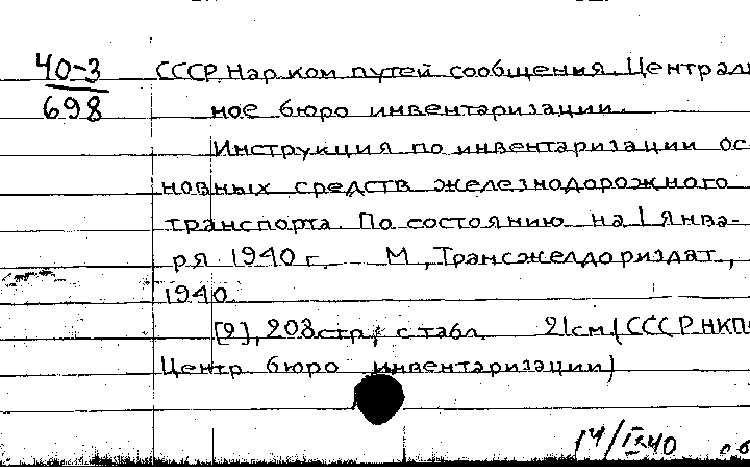 40-3
698
СССР. Нар. ком. путей сообщения. Централь
ное бюро инвентаризации.
Инструкция по инвентаризации ос
новных средств железнодорожного
транспорта. По состоянию на 1 янва-
ря 1940 г. — М, Трансжелдориздат,
1940.
[2], 208 стр., с табл. 21 см. (СССР НКПС
Центр. бюро инвентаризации)
14/IX 40